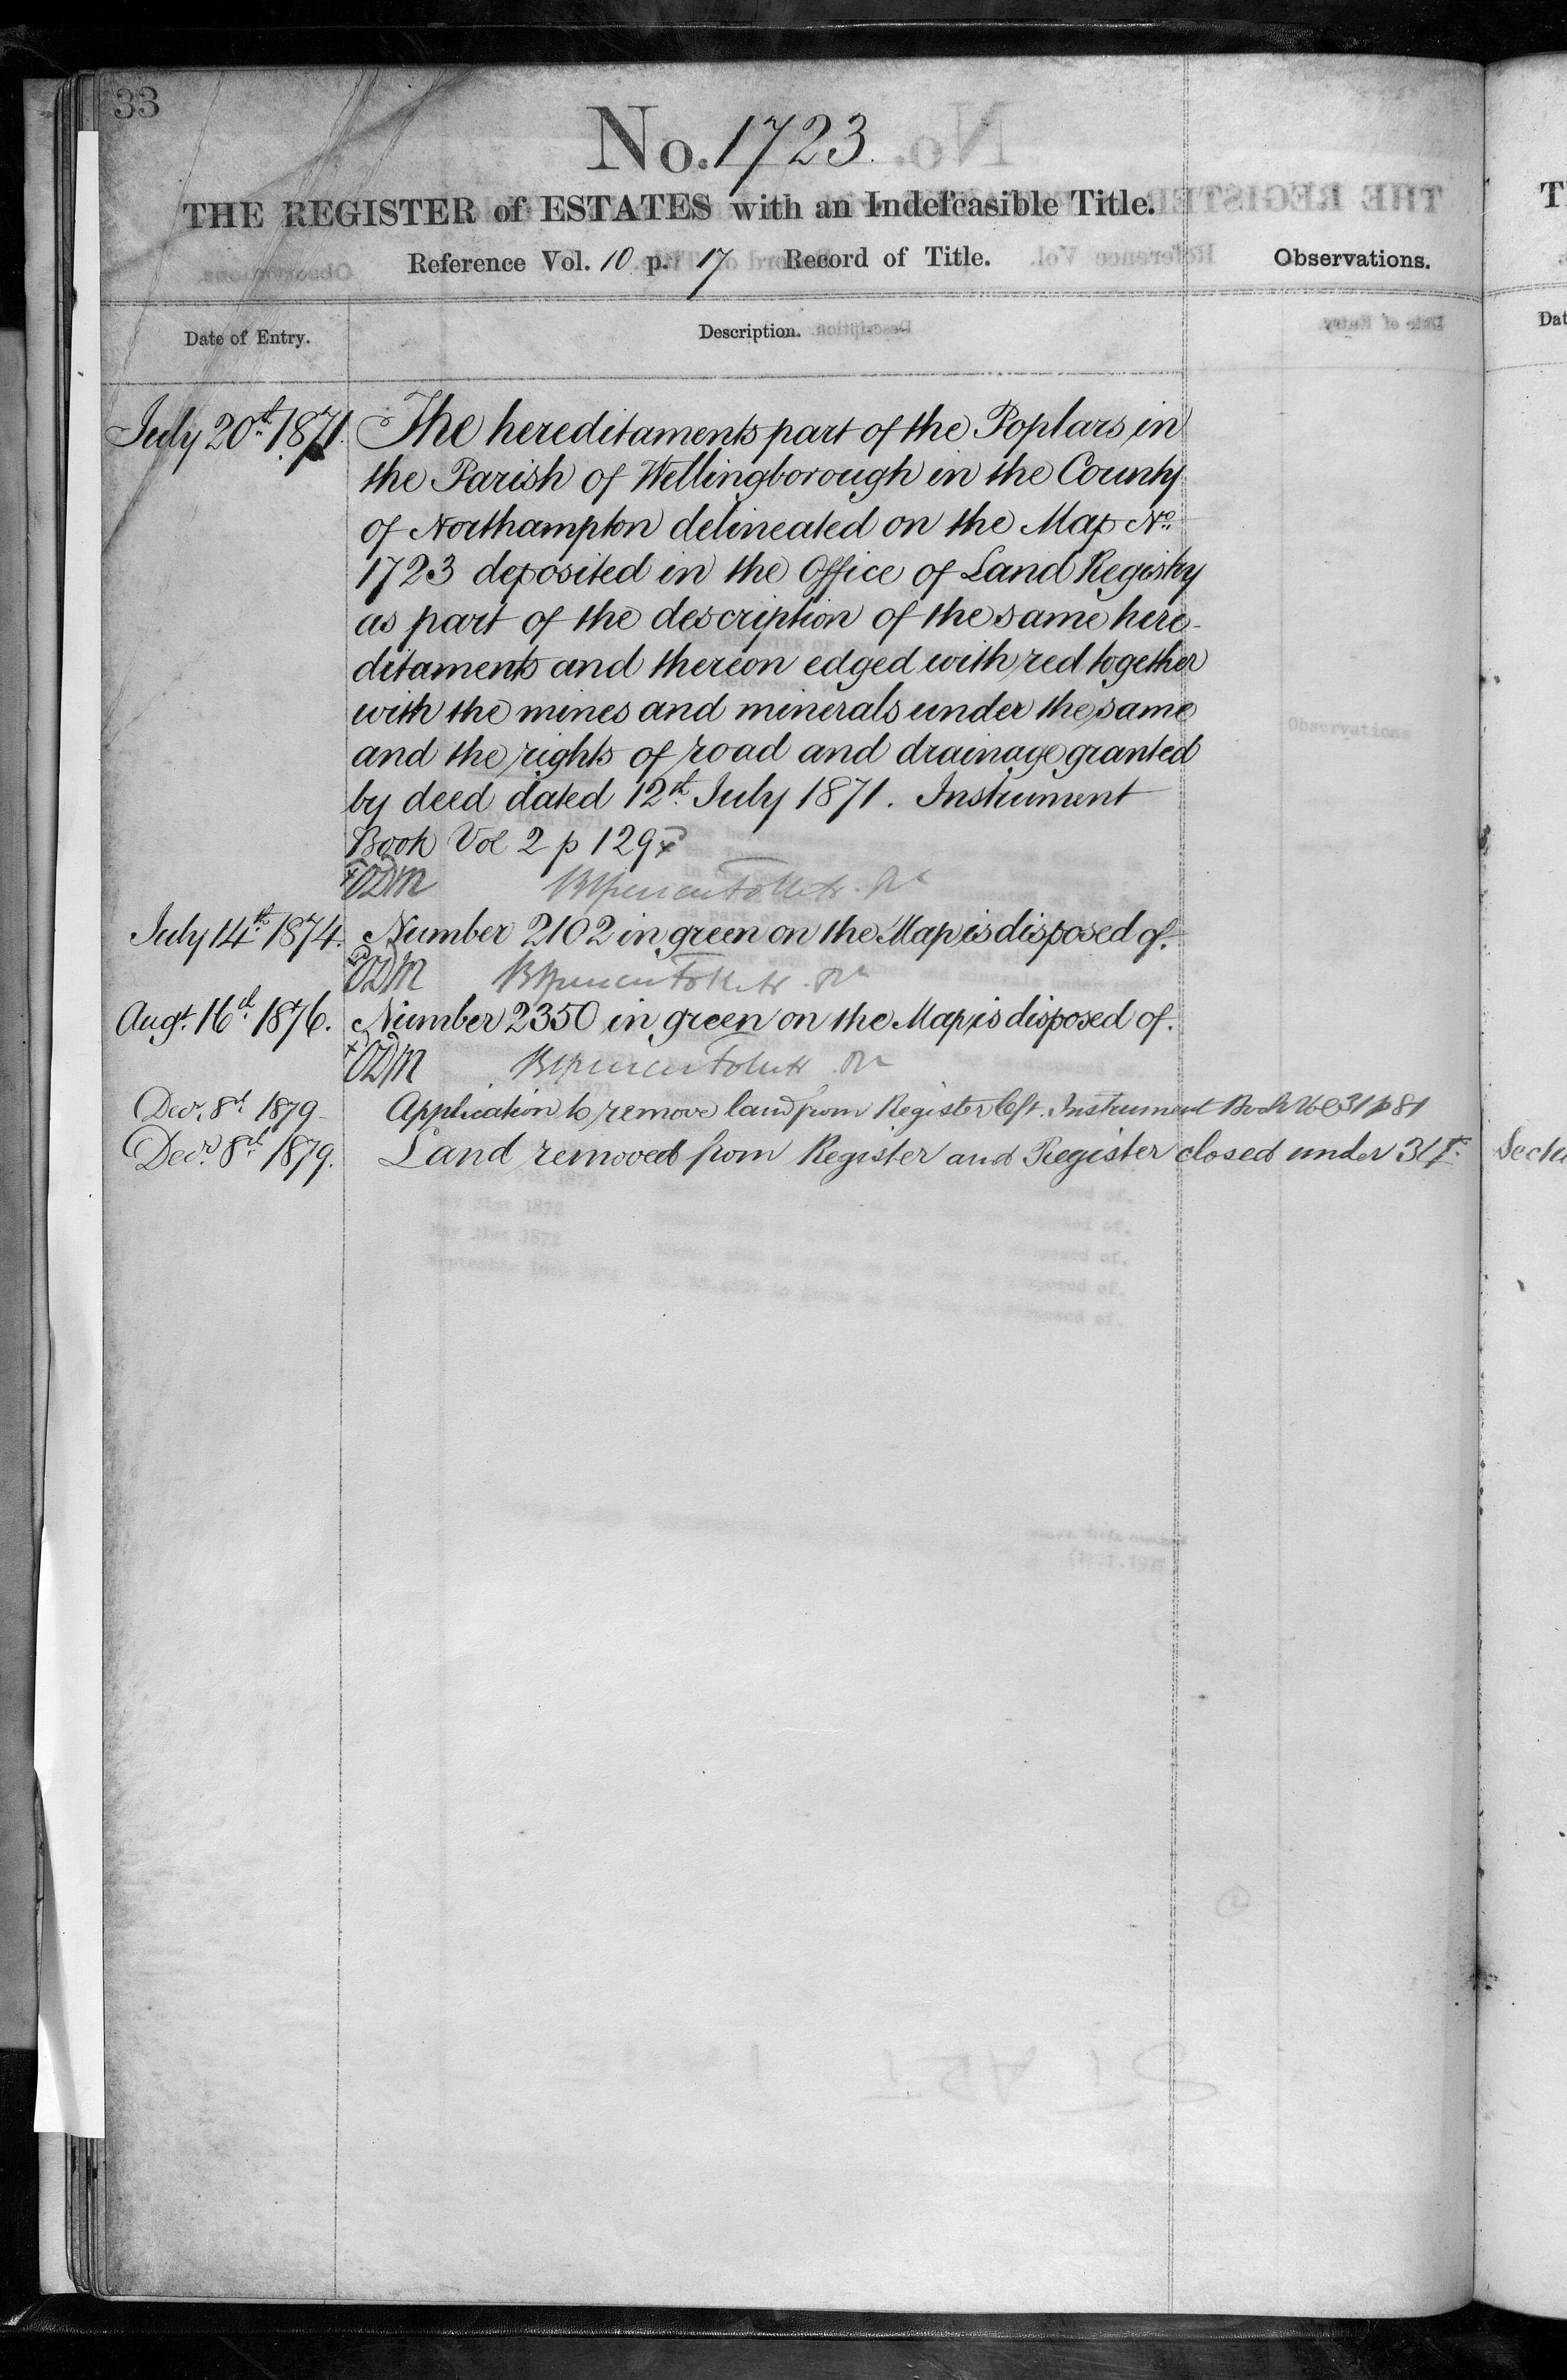 33
No. 1723.
THE REGISTER of ESTATES with an Indefeasible Title.
Reference Vol. 10 p. 17 Record of Title.
Observations.
Date of Entry.
Description.
July 20th 1871. The hereditaments part of the Poplars in
the Parish of Wellingborough in the County
of Northampton delineated on the Map No.
1723 deposited in the Office of Land Registry
as part of the description of the same here-
ditaments and thereon edged with red together
with the mines and minerals under the same
and the rights of road and drainage granted
by deed dated 12th July 1871. Instrument
Book Vol 2 p 129
July 14th 1874. Number 2102 in green on the Map is disposed of.
Augt. 16th 1876. Number 2350 in green on the Map is disposed of.
Decr. 8th 1879. Application to remove land from Register left. Instrument Book Vol 31 p 81
Decr. 8th 1879. Land removed from Register and Register closed under